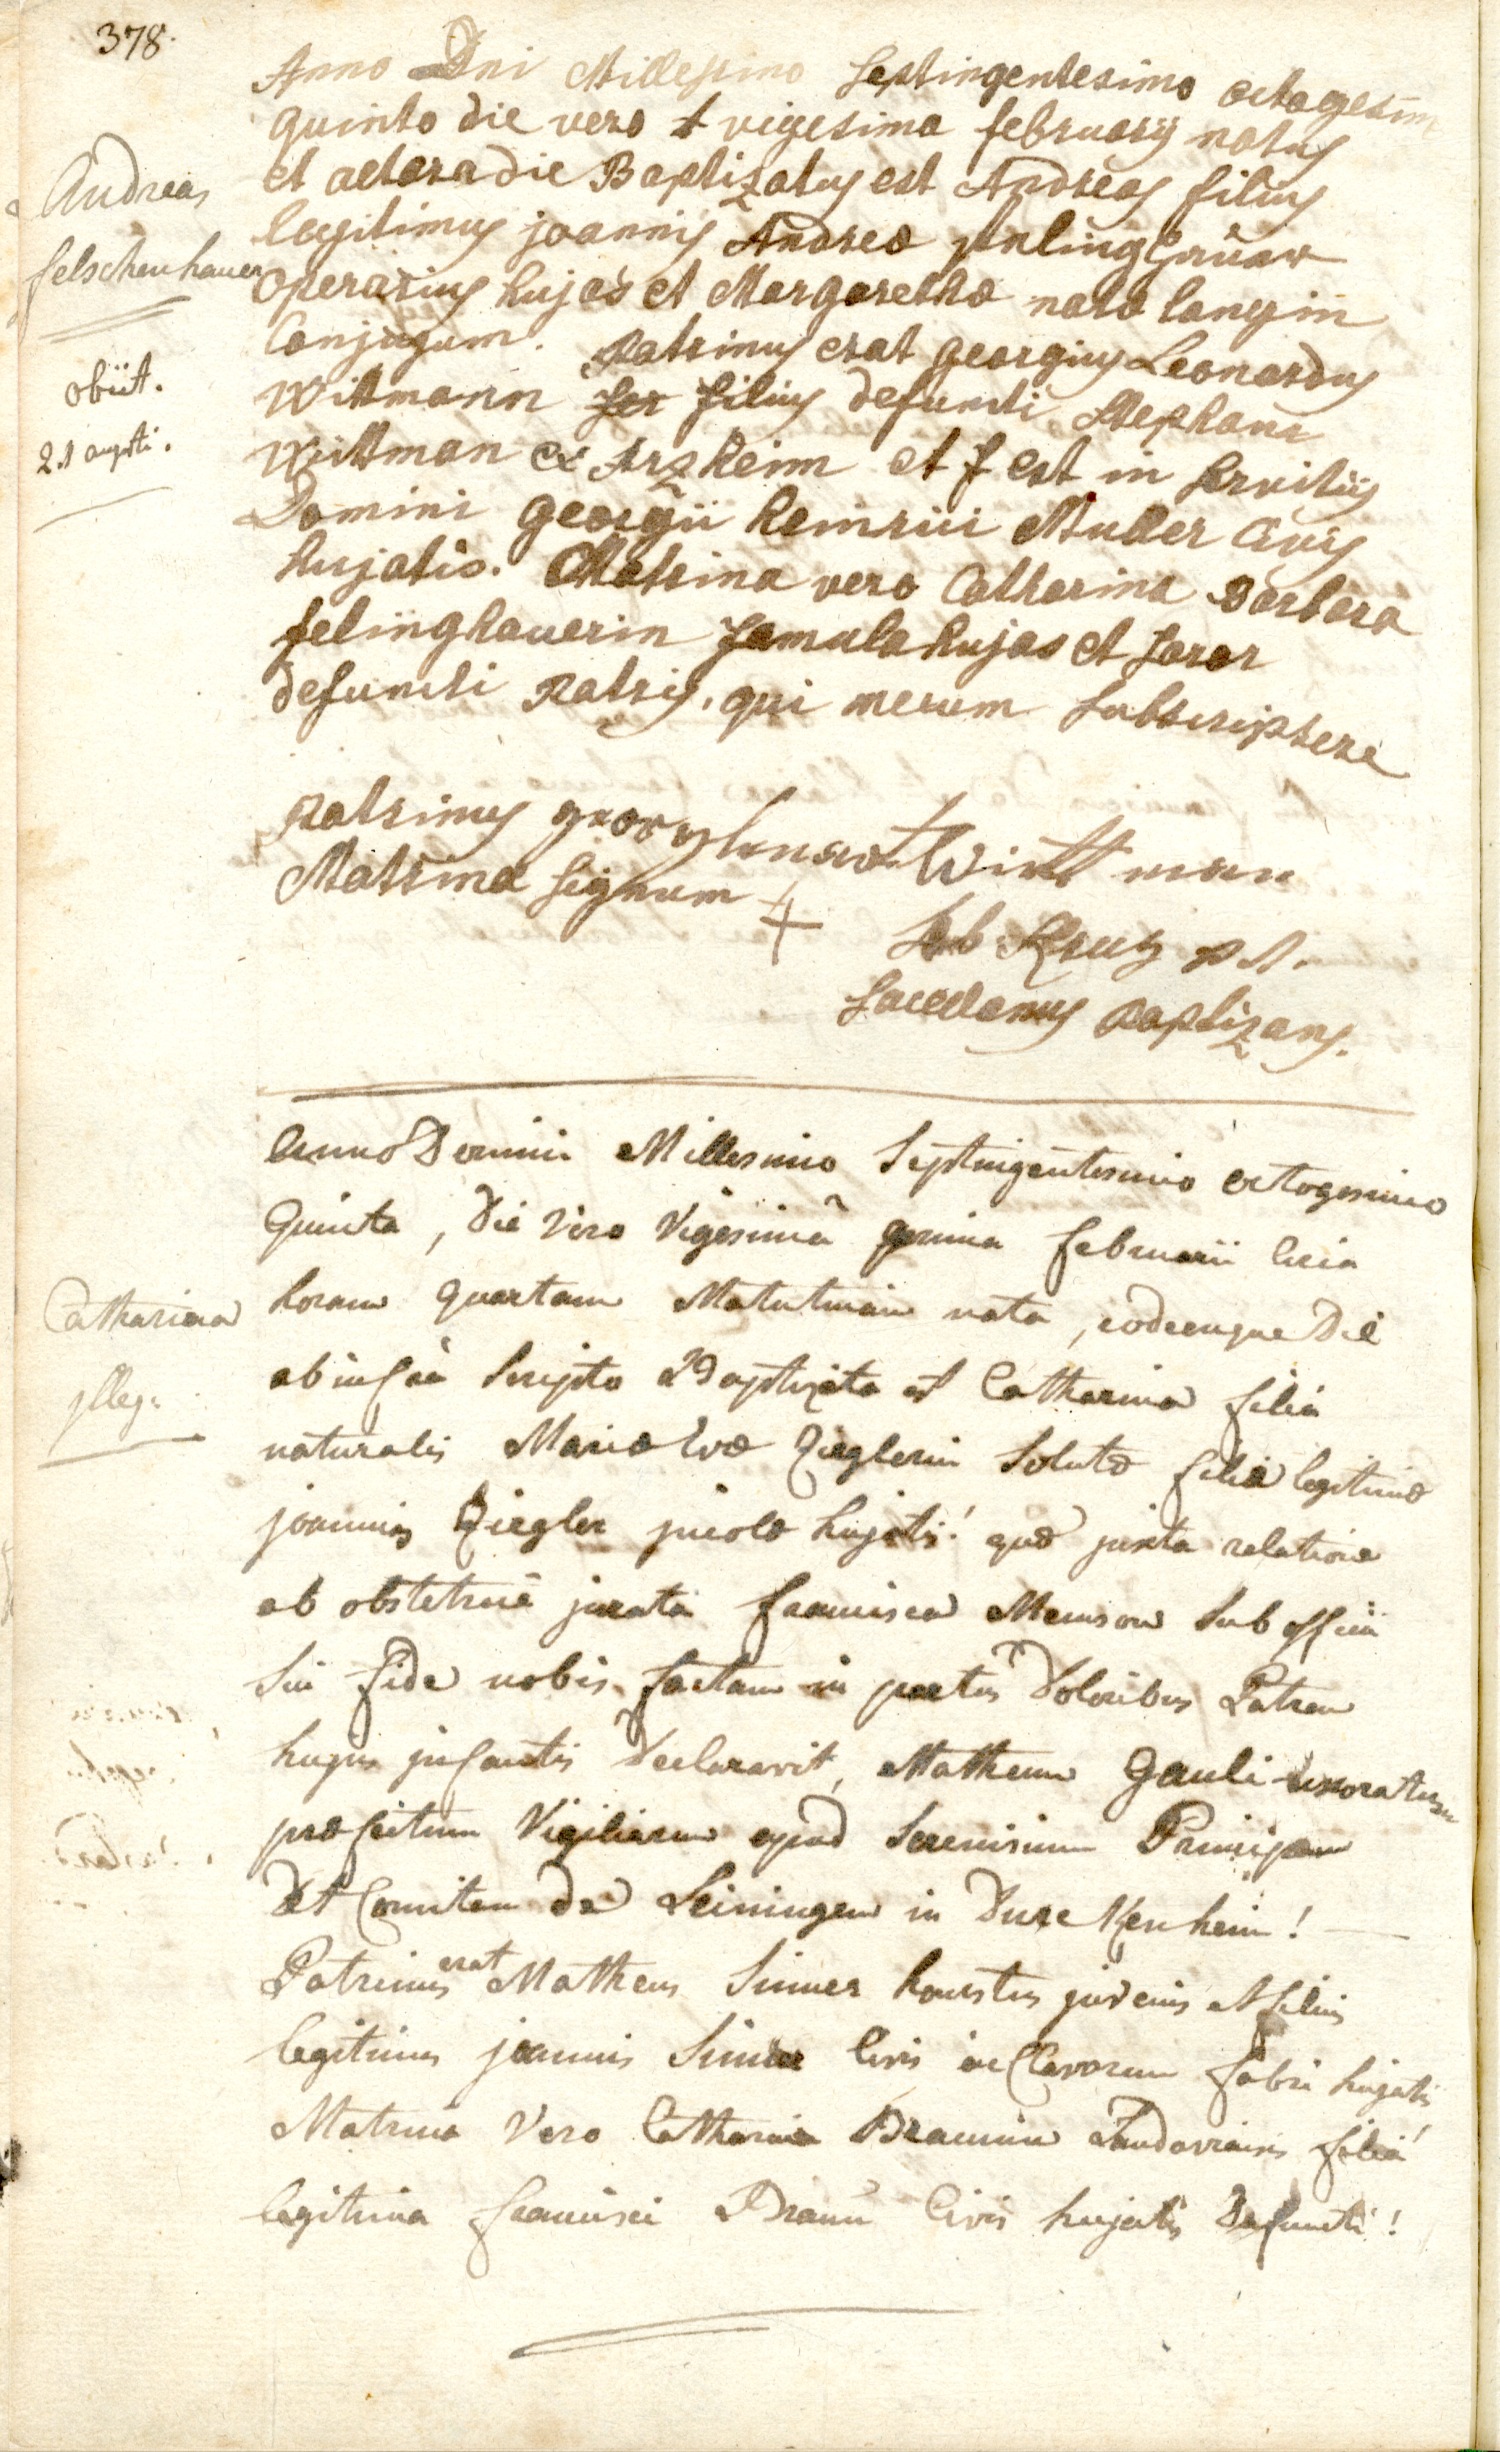 378.
Anno Dni Millessimo Septingentesimo octogesimo
quinto die vero vigesima februarij natus
et altera die Baptizatus est Andreas filius
legitimus joannis Andreæ
operarius hujas et Margarethæ natæ langin
Conjugum. Patrinus erat georgius Leonardus
Wittmann filius defuncti Stephani
Wittman ex Arzheim et est in servitiis
Domini georgii henrici Muller Civis
hujatis. Matrina vero Catharina Barbara
felsinghauerin famula hujas et soror
defuncti Patris. qui mecum subscripsere
Andreas
felschenhauer
obiit.
21 augsti.
Patrinus georg lenard Wittman
Matrina Signum +
Seb Kruz p t.
Sacellanus Baptizans.
Anno Domini Millesimo Septingentesimo octogesimo
Quinto, die vero vigesimâ prima februarii circa
horam quartam Matutinam nata, eodemque die
ab infra scripto Baptizata est Catharina filia
naturalis Mariæ Evæ Zieglerin solutæ filiæ legitimæ
joannis Ziegler incolæ hujatis! quæ juxta relatione
ab obstetrice jurata francisca sub officii
sui fide nobis factam in partus doloribus Patrem
hujus infantis declaravit, Matheum Gauli uxoratum
præfectum Vigiliarum apud Serenisimum Principem
et Comitem de Leiningen in Durckenheim!
Patrinus erat Matheus Sinner honestus juvenis et filius
legitimus joannis Sinner Civis ac Clavorum fabri hujatis
Matrina vero Catharina Braunin Landaviensis filia
legitima francisci Braun Civis hujatis defuncti!
Catharina
illeg: